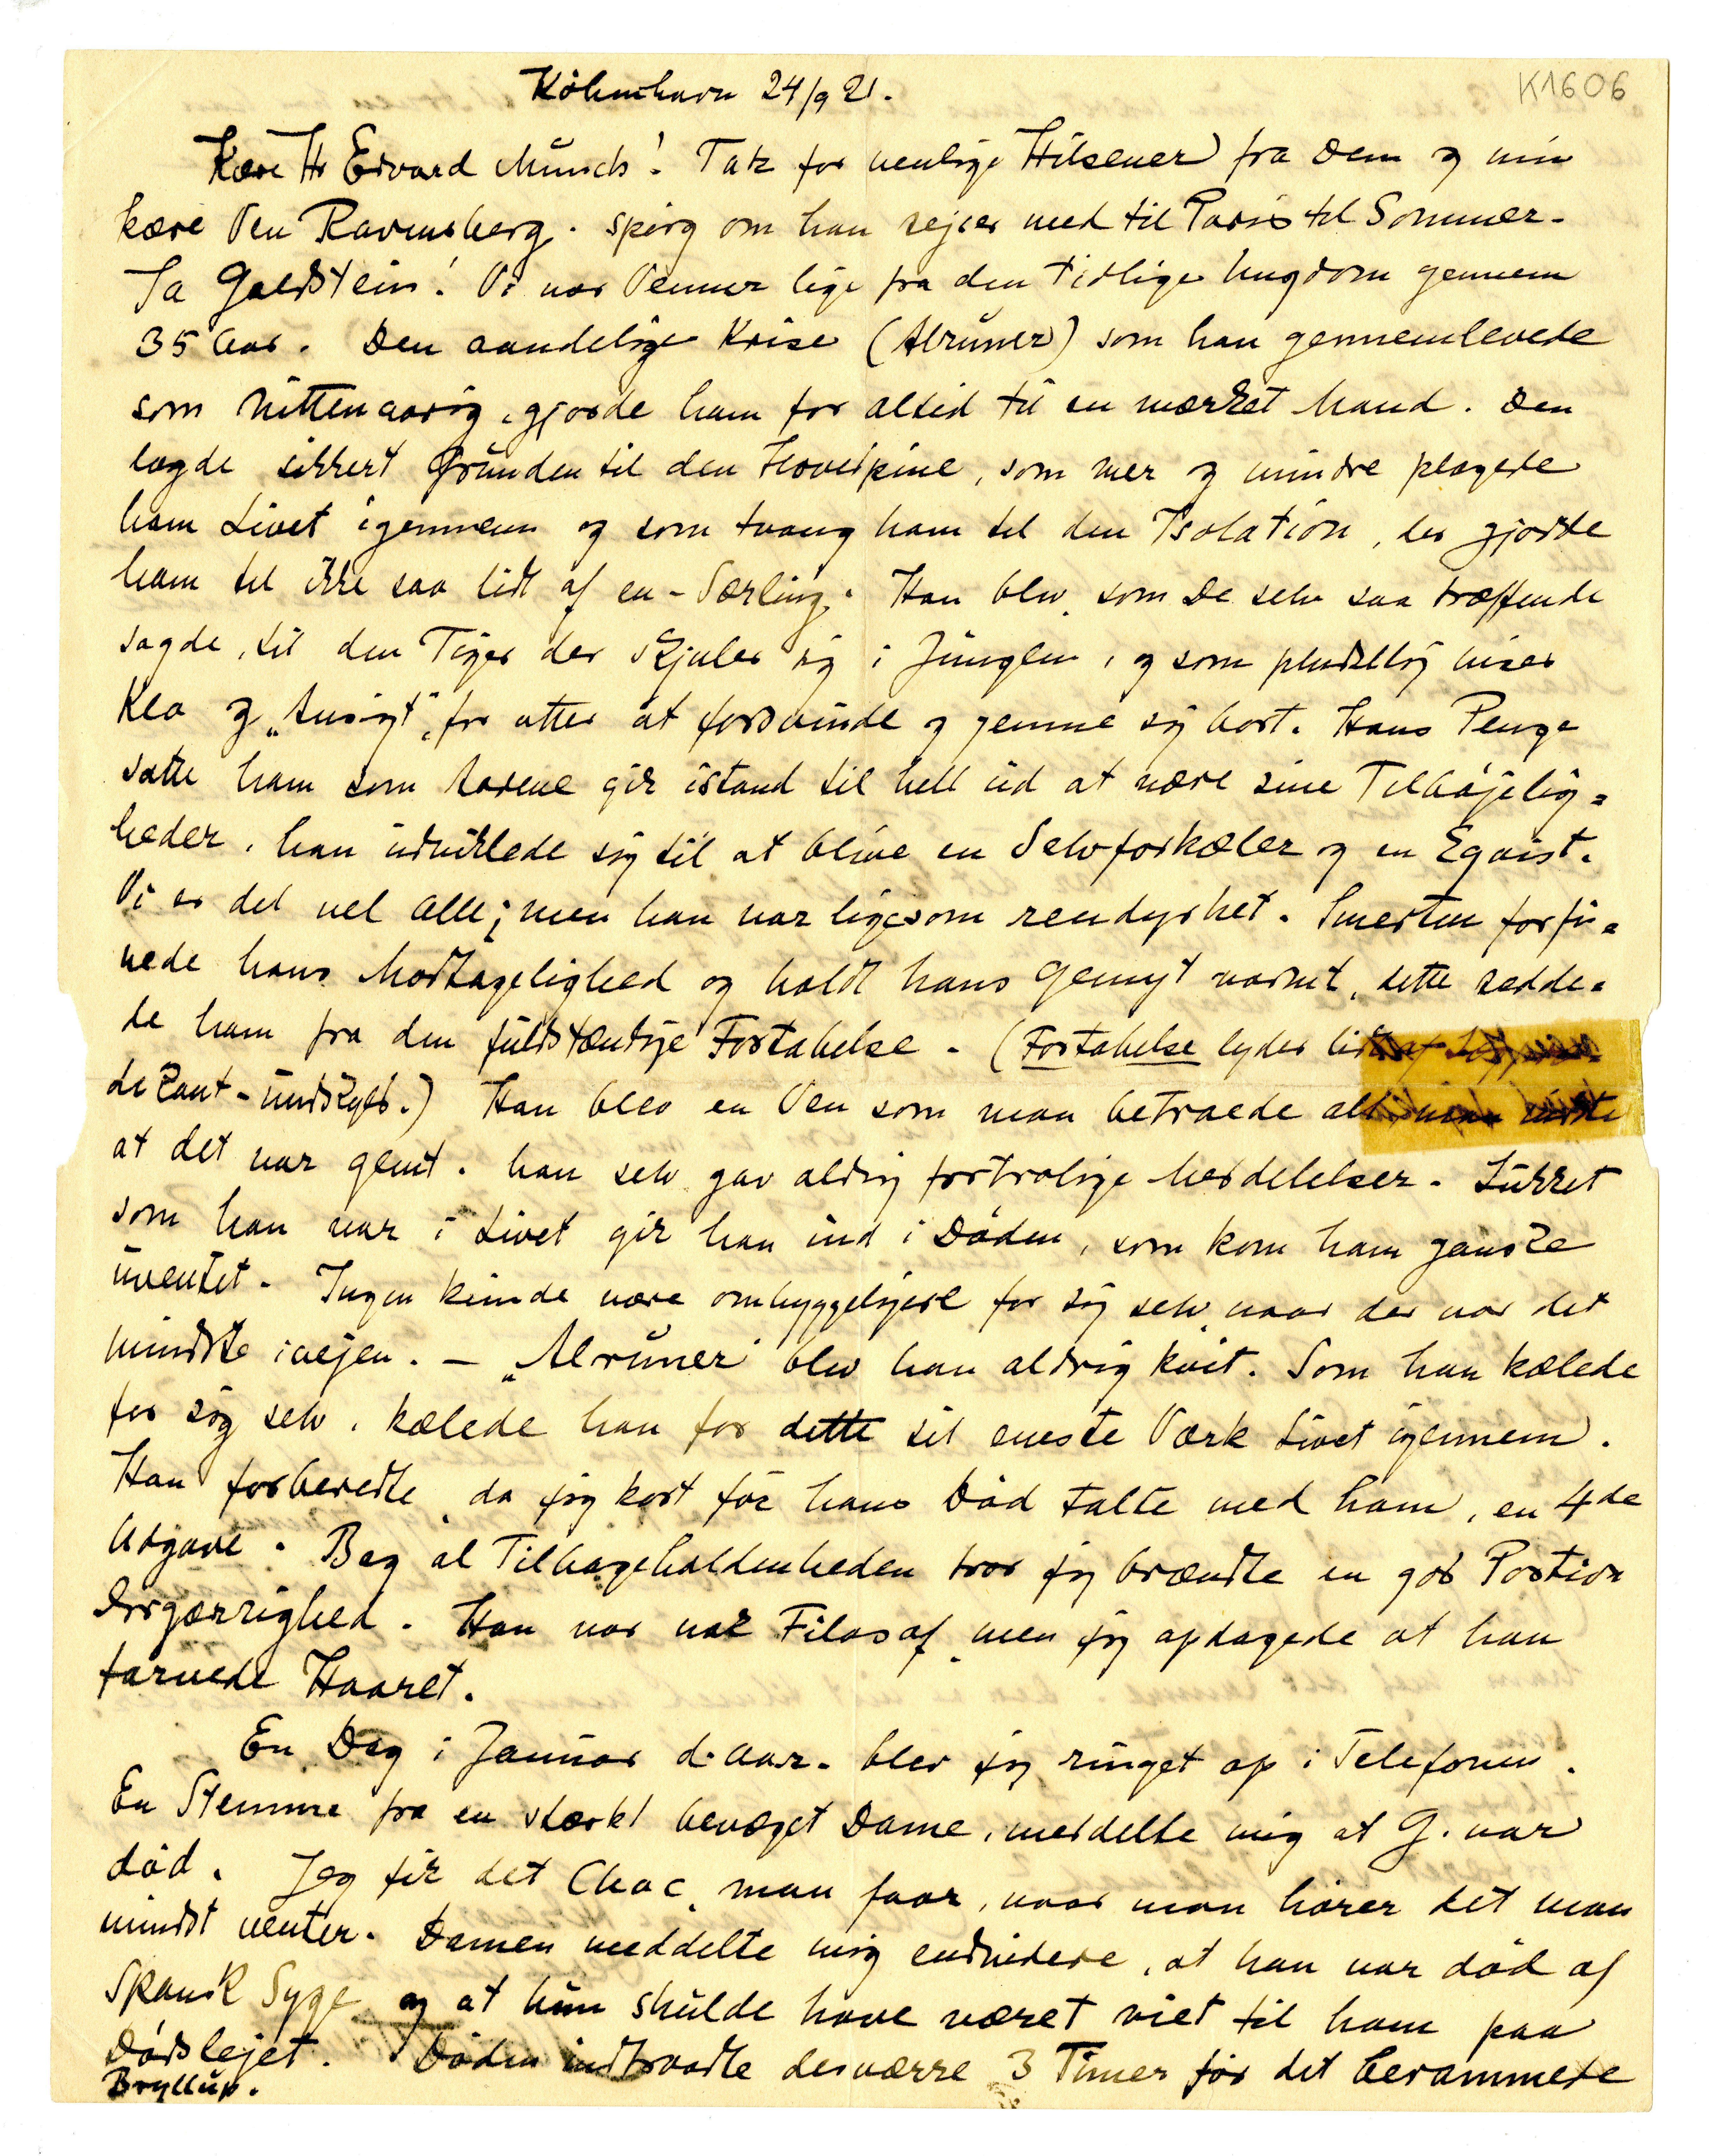 København 24/9 21.
K1606
Kære Hr Edvard Munch! Tak for venlige Hilsener fra Dem og min
kære Ven Ravensberg. Spørg om han rejser med til Paris til Sommer.
Ja Goldstein! Vi var Venner lige fra den tidlige Ungdom gennem
35 Aar. Den aandelige Krise (Alruner) som han gennemlevede
som nittenaarig, gjorde ham for altid til en mærket Mand. Den
lagde sikkert Grunden til den Hovedpine, som mer og mindre plagede
ham Livet igennem og som tvang ham til den Isolation, der gjorde
ham til ikke saa lidt af en - Særling. Han blev, som De selv saa træffende
sagde, til den Tiger der skjuler sig i Junglen, og som pludselig viser
Klo og „Ansigt", for atter at forsvinde og gemme sig bort. Hans Penge
satte ham som Aarene gik istand til helt ud at nære sine Tilbøjelig=
heder, han udviklede sig til at blive en Selvforkæler og en Egoist.
Vi er det vel alle; men han var ligesom rendyrket. Smerten forfi=
nede hans Modtagelighed og holdt hans Gemyt varmt, dette redde=
de ham fra den fuldstændige Fortabelse. (Fortabelse lyder lidt af
de Rant - undskyld.) Han blev en Ven som man betroede alt, man vidste
at det var gemt. han selv gav aldrig fortrolige Meddelelser. Lukket
som han var i Livet gik han ind i Døden, som kom ham ganske
uventet. Ingen kunde være omhyggeligere for sig selv, naar der var det
mindste ivejen. — „Alruner" blev han aldrig kvit. Som han kælede
for sig selv, kælede han for dette sit eneste Værk Livet igennem.
Han forberedte, da jeg kort før hans Død talte med ham, en 4de
Udgave. Bag al Tilbageholdenheden tror jeg brændte en god Portion
Ærgærrighed. Han var nok Filosof, men jeg opdagede at han
farvede Haaret.
En Dag i Januar d. Aar. blev jeg ringet op i Telefonen.
En Stemme fra en stærkt bevæget Dame, meddelte mig at G. var
død. Jeg fik det Choc, man faar, naar man hører det man
mindst venter. Damen meddelte mig endvidere, at han var død af
Spansk Syge og at hun skulde have været viet til ham paa
Dødslejet. Døden indtraadte desværre 3 Timer før det berammede
Bryllup.